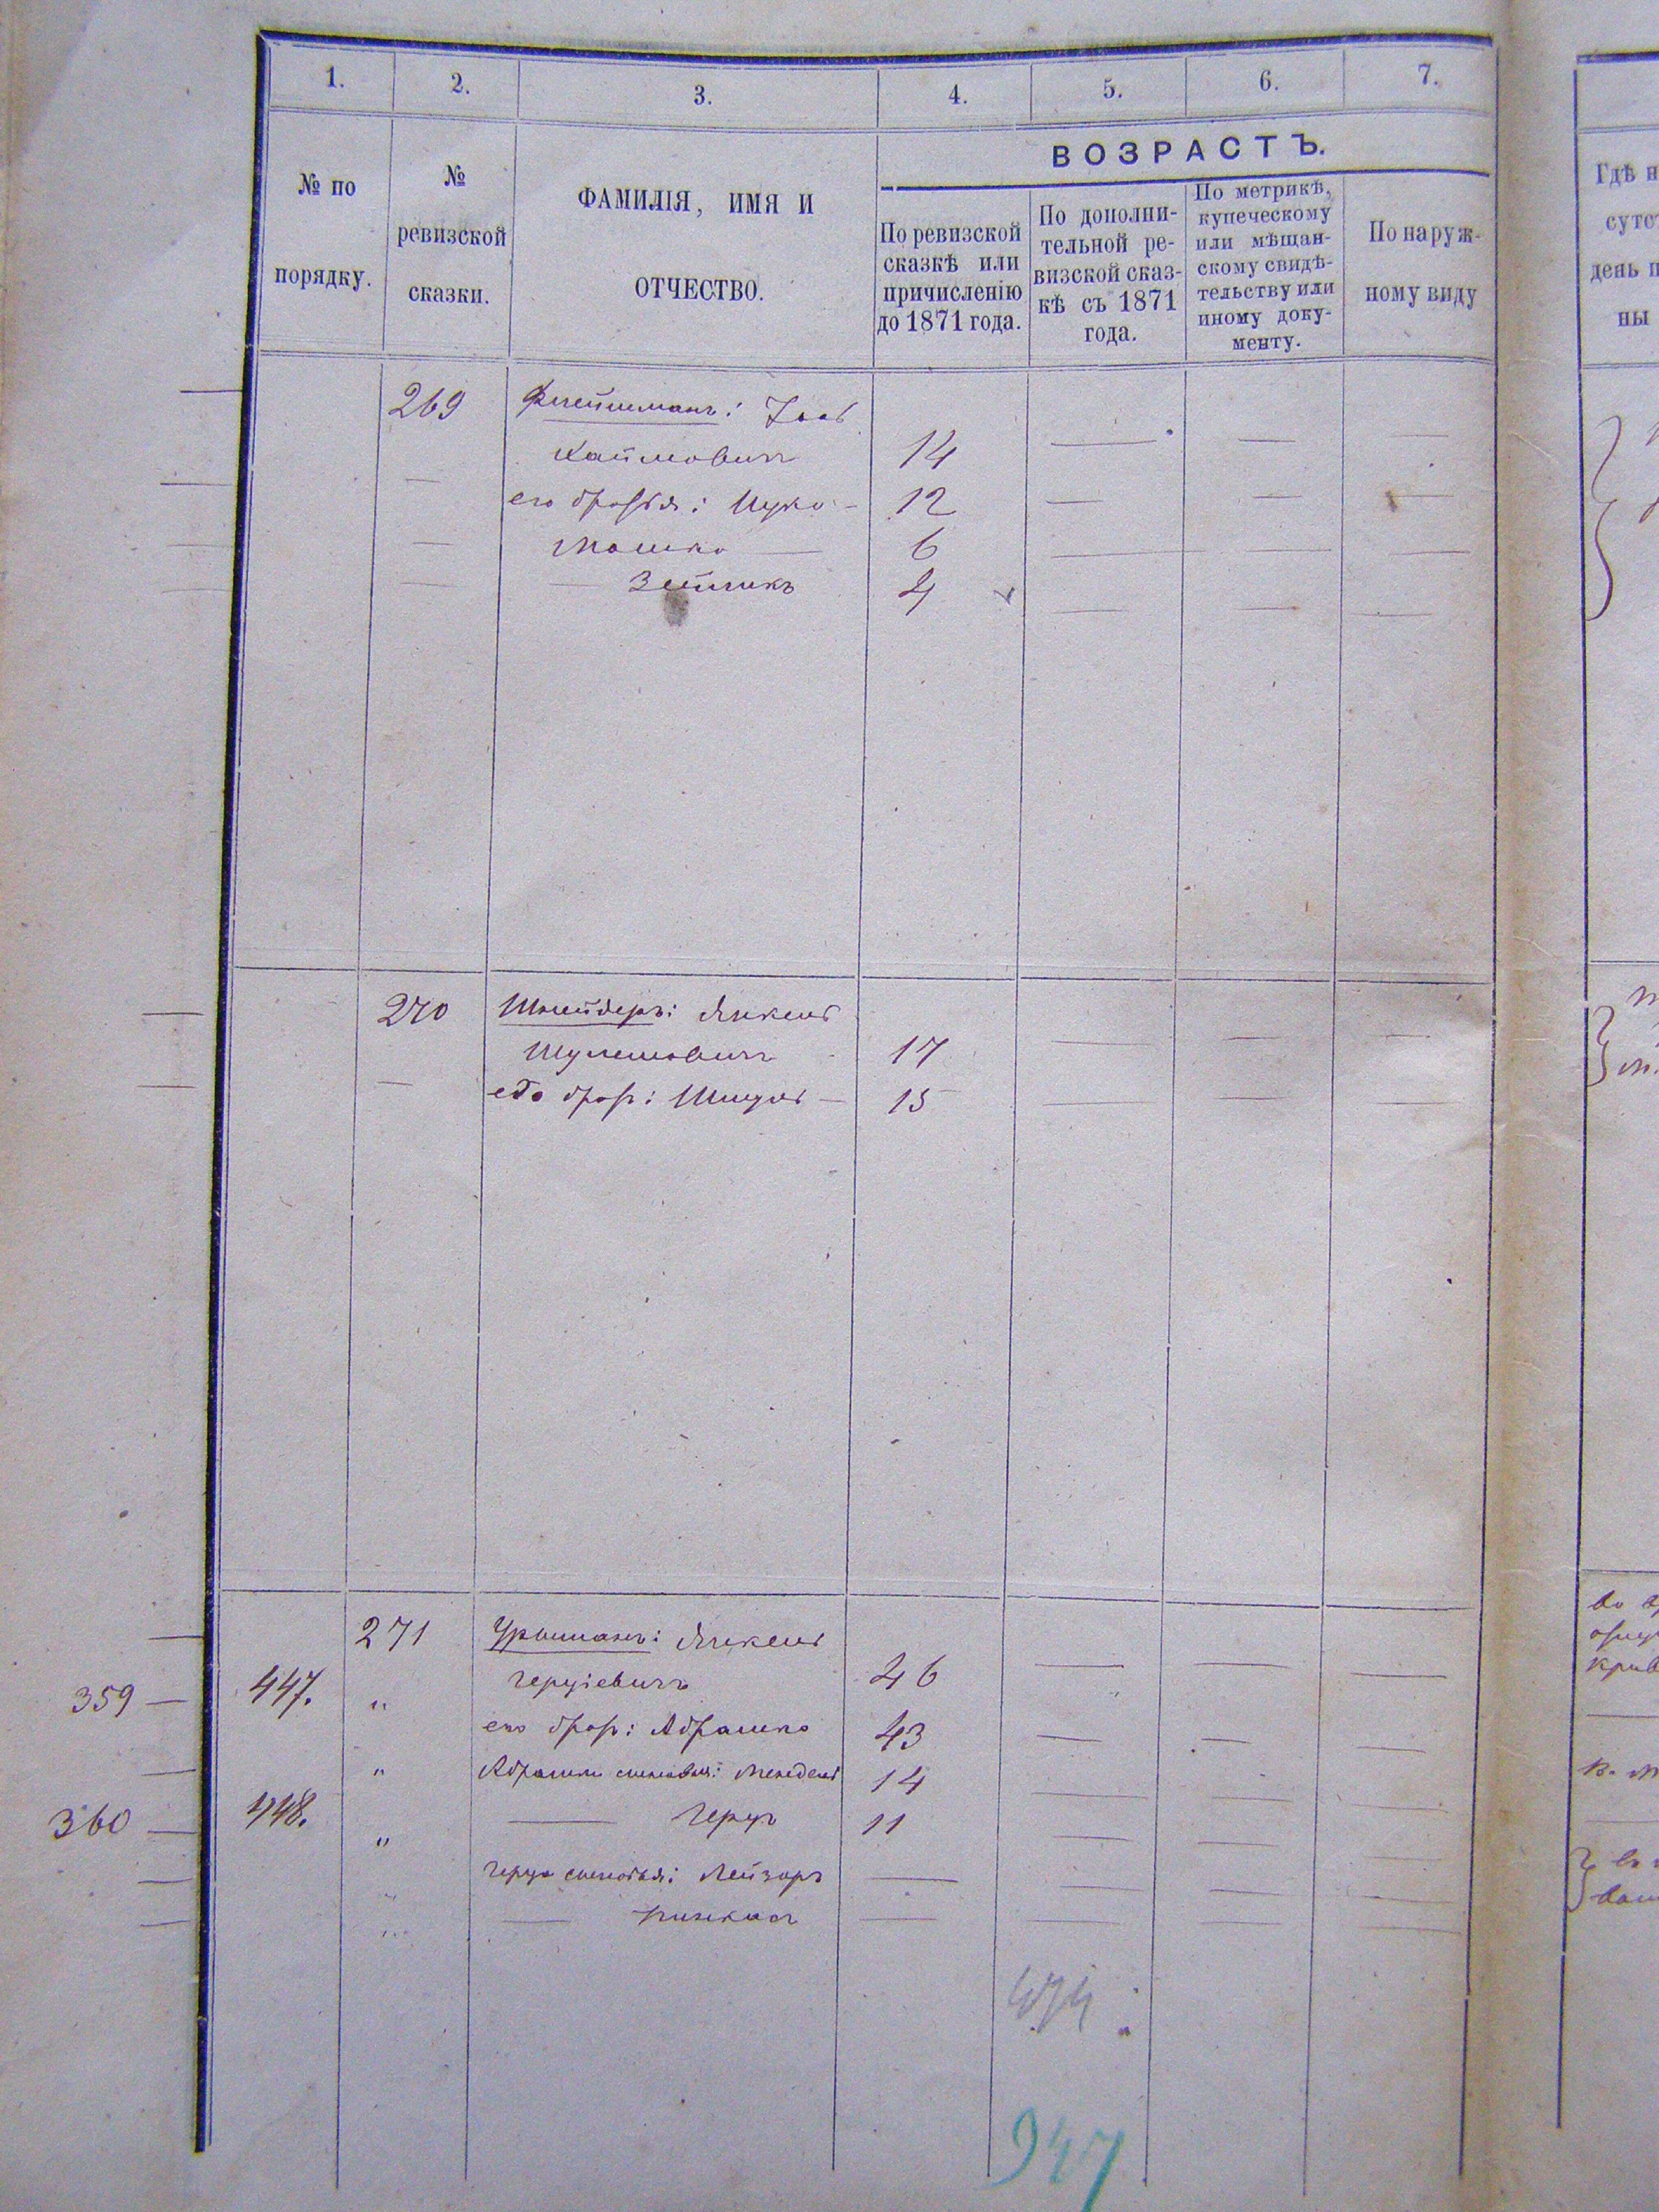 1. 2. 3. 4. 5. 6. 7.
№ по порядку.
№ ревизской сказки.
ФАМИЛІЯ, ИМЯ И
ОТЧЕСТВО.
ВОЗРАСТЪ.
По ревизской
сказкѣ или
причисленію
до 1871 года.
По дополни-
тельной ре-
визской сказ-
кѣ съ 1871
года.
По метрикѣ,
купеческому
или мѣщан-
скому свидѣ-
тельству или
иному доку-
менту.
По наруж-
ному виду
Гдѣ н
сутст
день п
ны
269
Хаймовичъ 14
его братья: Ицко 12
Мошко 6
Зейликъ 4
270 Шнейдеръ: Янкель
Шулимовичъ 17
его братъ: 15
271 Янкель
359 447. " Герцевичъ 46
его братъ: Абрамко 43
" Абрамки сыновья: Мендель 14
360 448. " Герцъ 11
Герца сыновья: Лейзоръ
" Пинкасъ
474
947